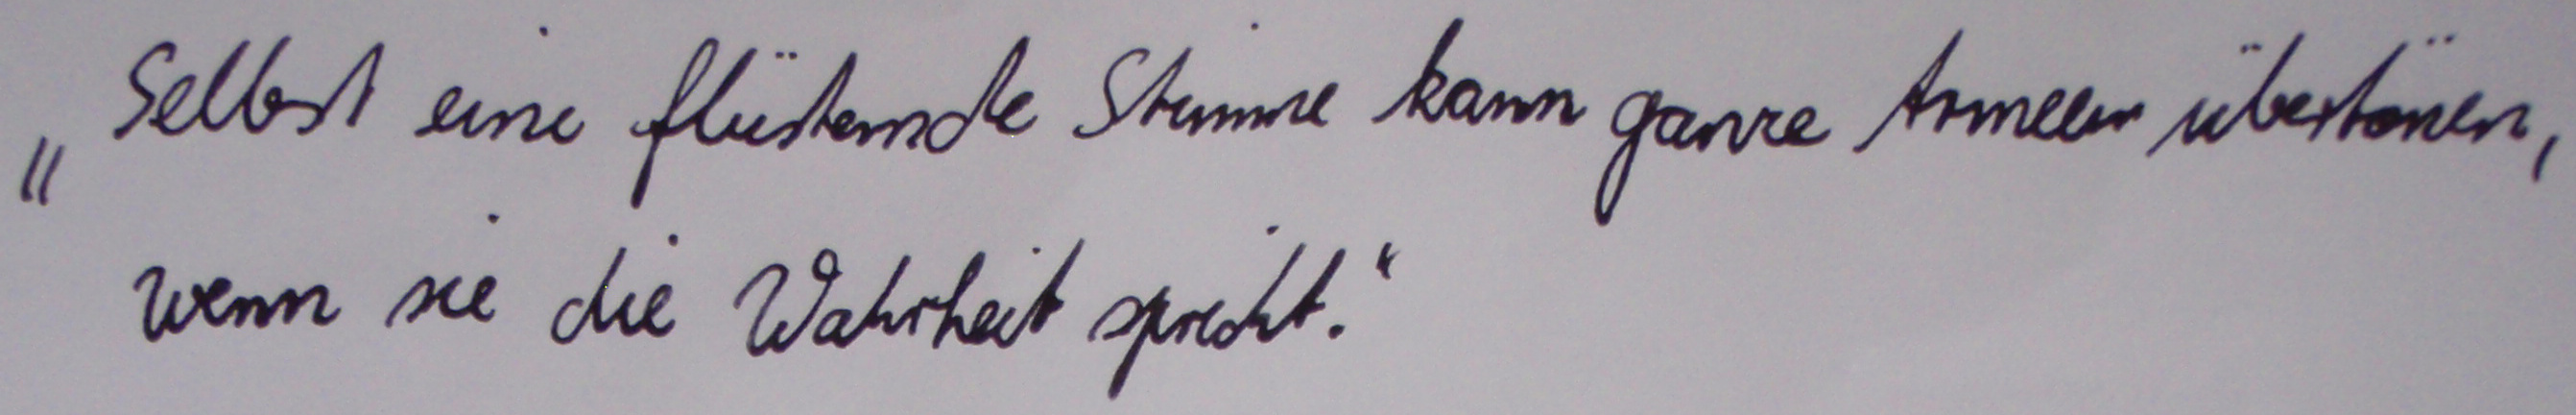 „Selbst eine flüsternde Stimme kann ganze Armeen übertönen,
wenn sie die Wahrheit spricht.“